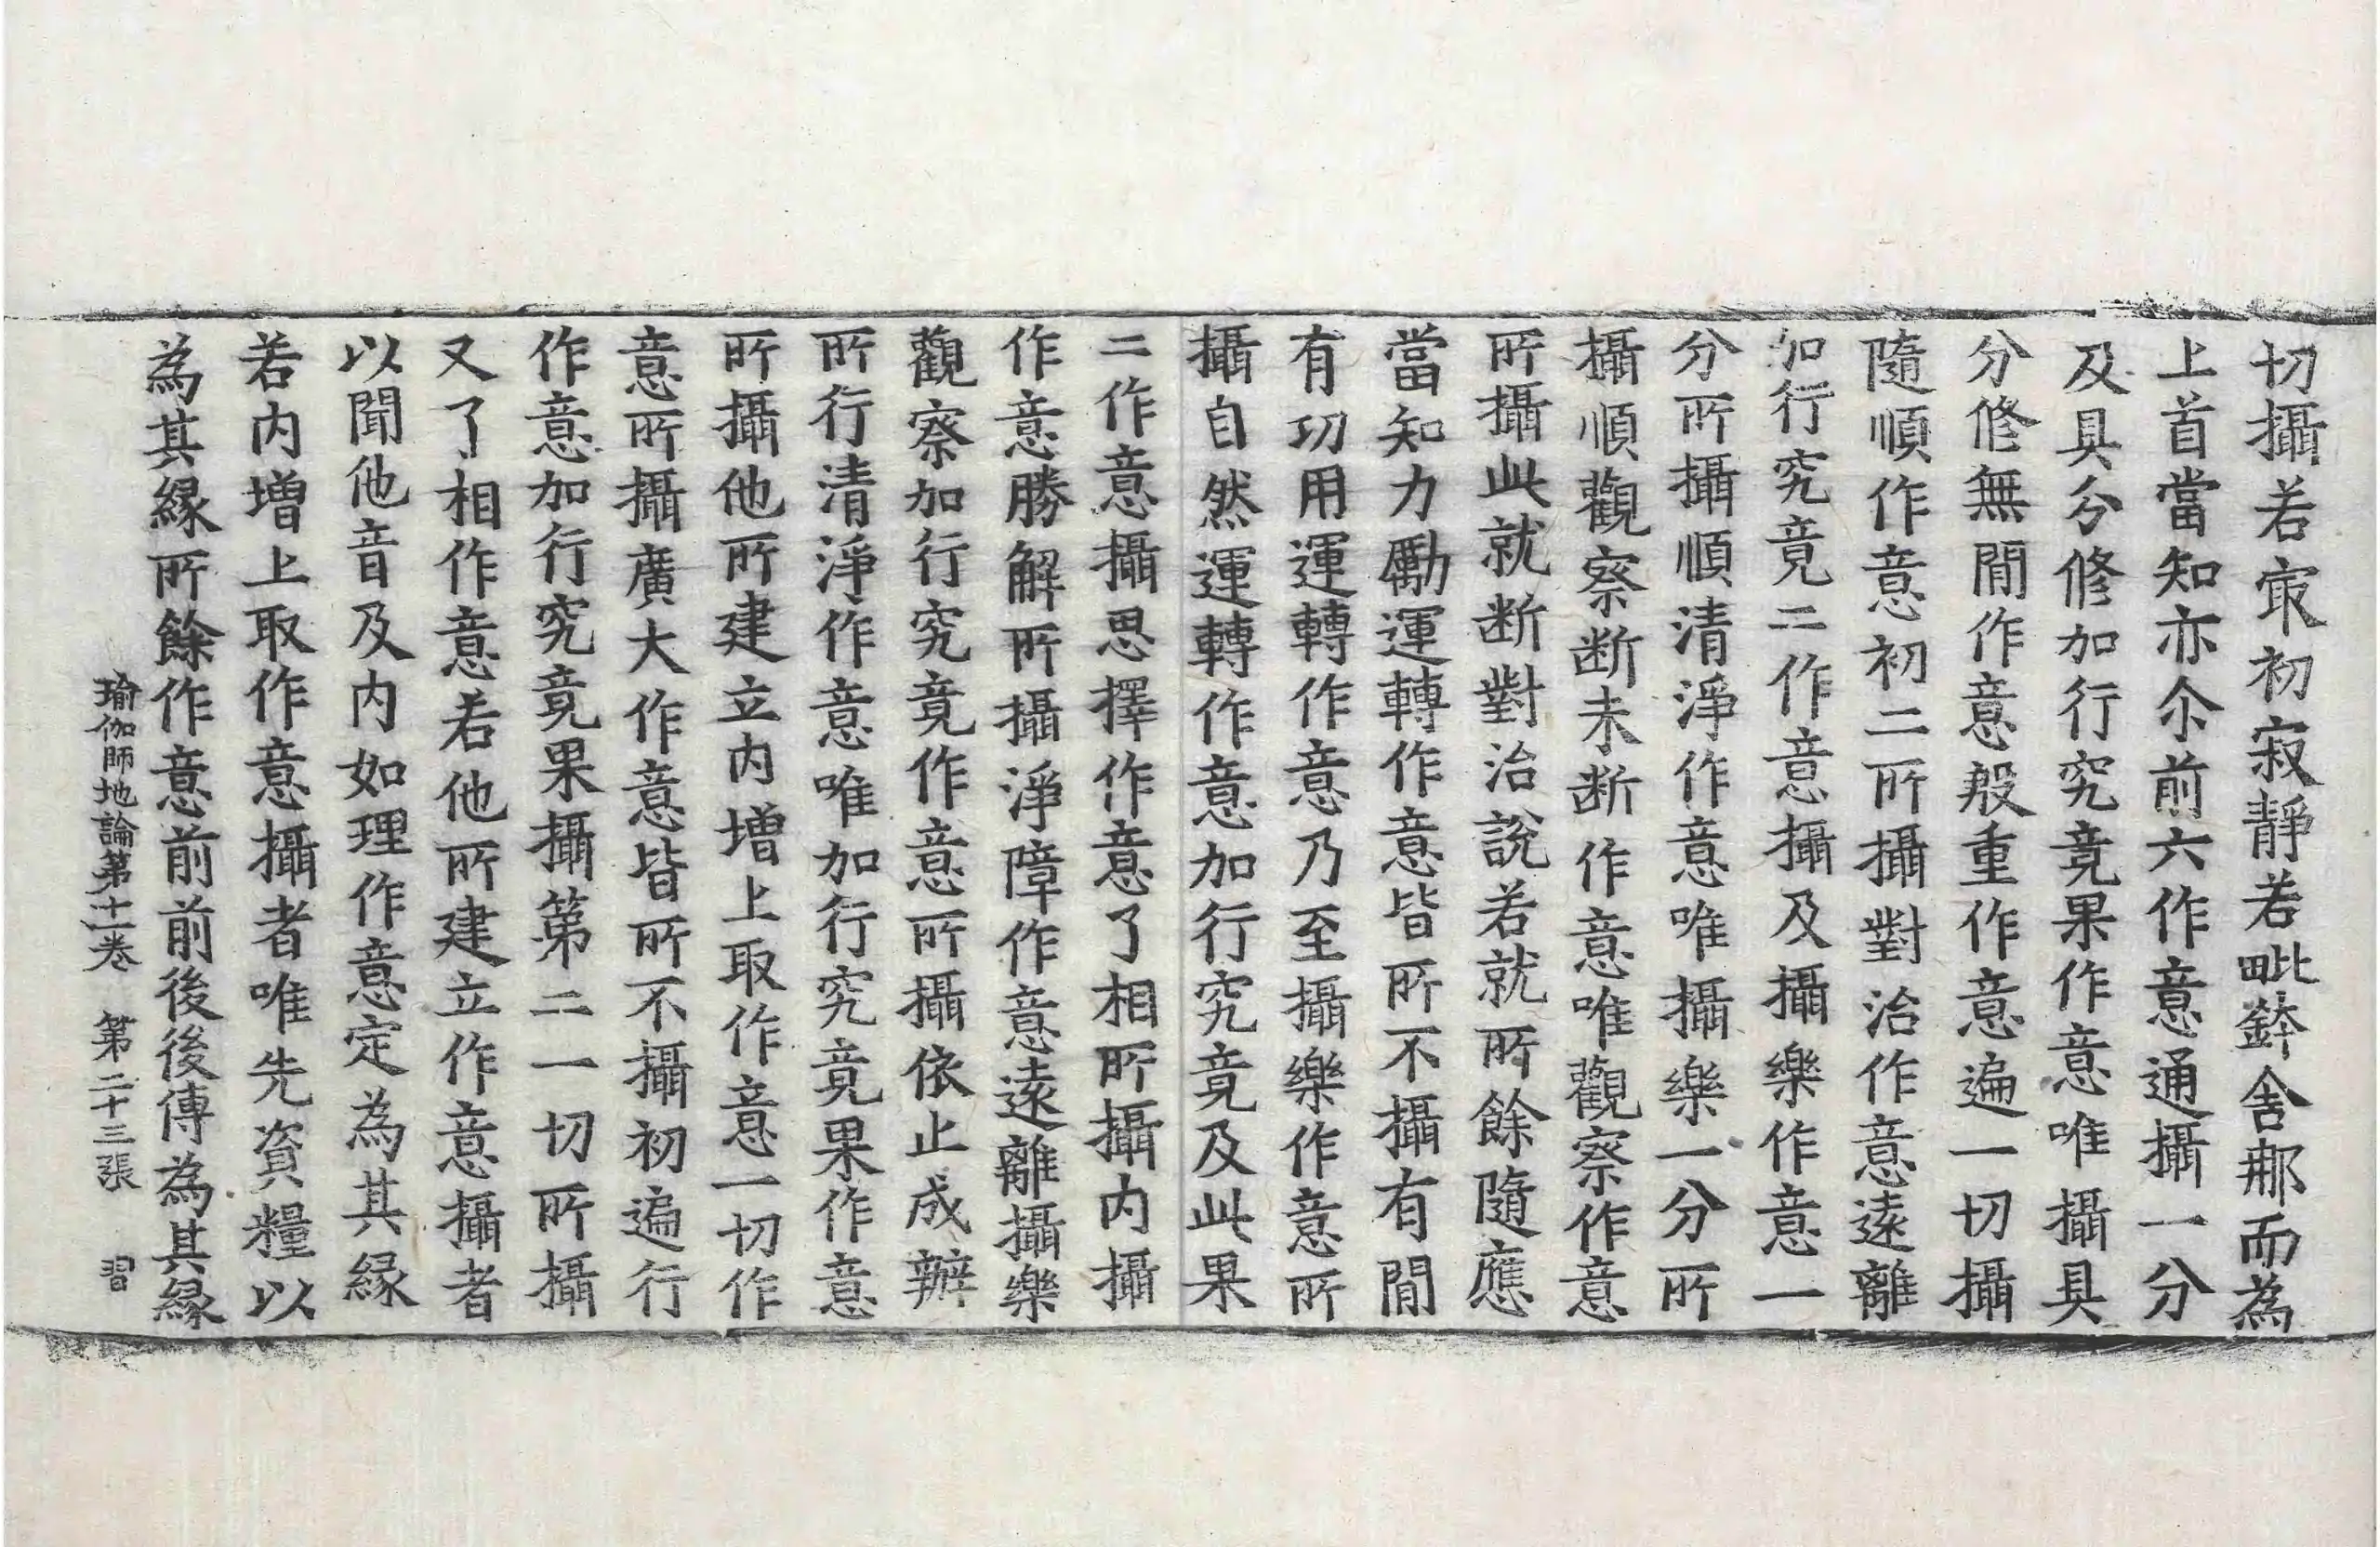 切攝若㝡初寂靜若毗鉢舍那而為
上首當知亦尒前六作意通攝一分
及具分修加行究竟果作意唯攝具
分修無閒作意殷重作意遍一切攝
隨順作意初二所攝對治作意遠離
加行究竟二作意攝及攝樂作意一
分所攝順清淨作意唯攝樂一分所
攝順觀察断未断作意唯觀察作意
所攝此就断對治說若就所餘隨應
當知力勵運轉作意皆所不攝有閒
有功用運轉作意乃至攝樂作意所
攝自然運轉作意加行究竟及此果
二作意攝思擇作意了相所攝内攝
作意勝解所攝淨障作意遠離攝樂
觀察加行究竟作意所攝依止成辦
所行清淨作意唯加行究竟果作意
所攝他所建立内增上取作意一切作
意所攝廣大作意皆所不攝初遍行
作意加行究竟果攝第二一切所攝
又了相作意若他所建立作意攝者
以聞他音及内如理作意定為其緣
若内增上取作意攝者唯先資糧以
為其緣所餘作意前前後後傳為其緣
瑜伽師地論第十一卷　第二十三張　習